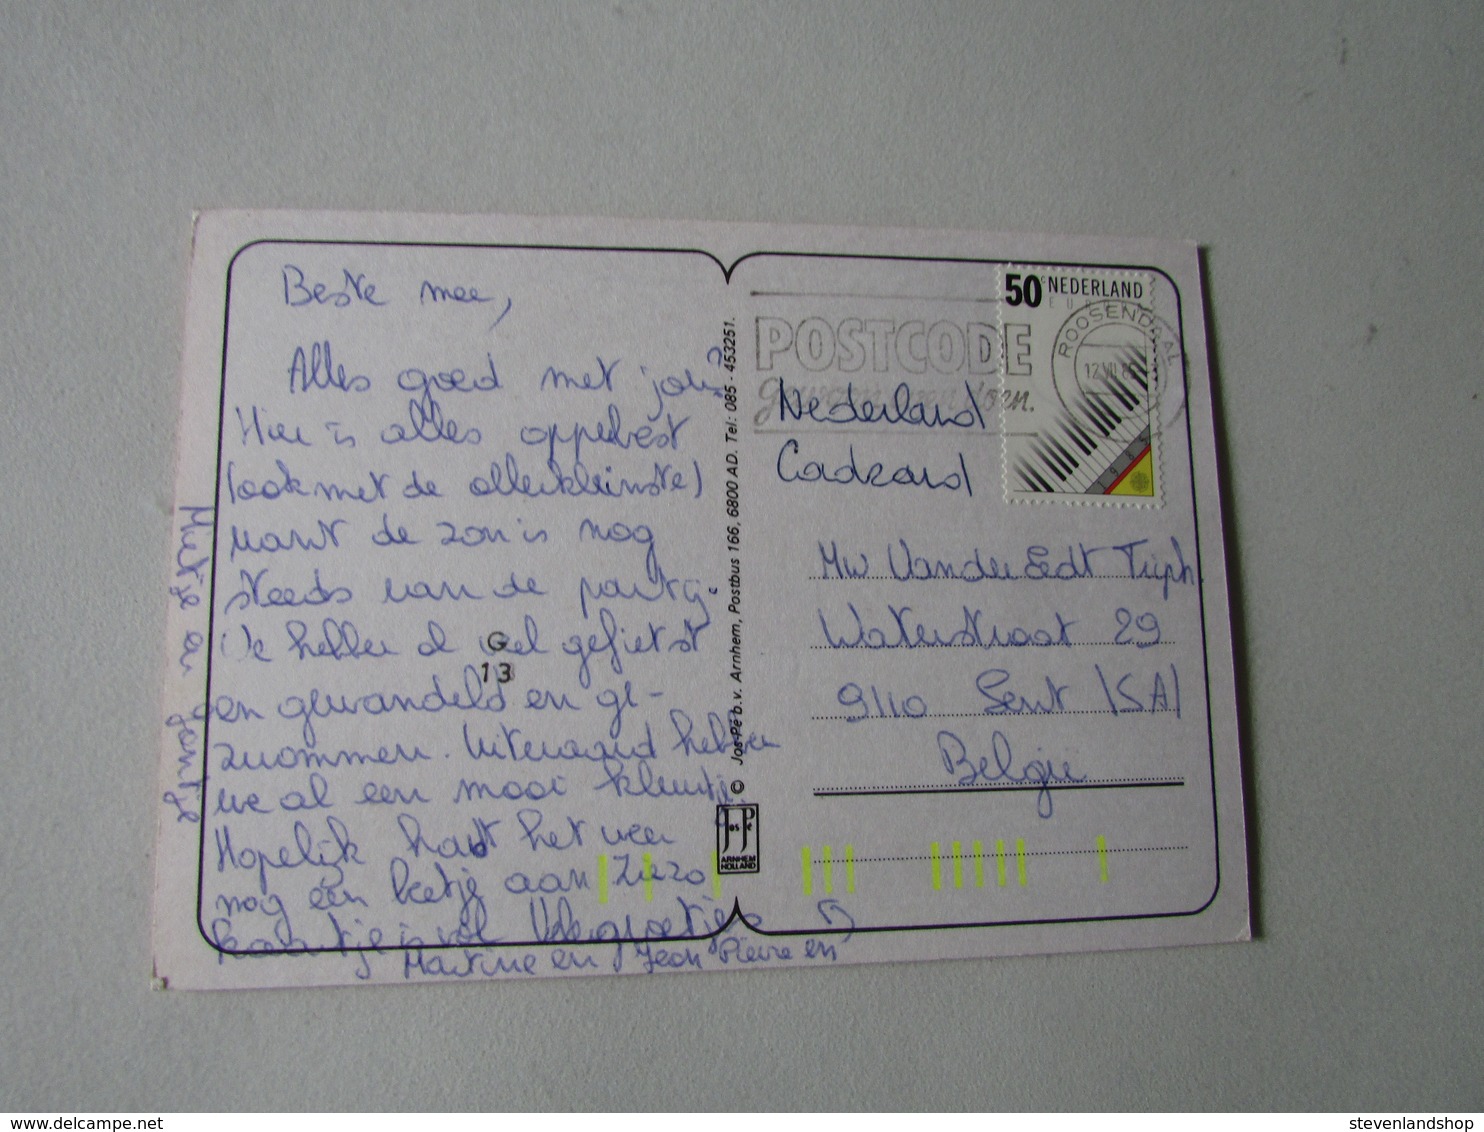 Beste mee,
Alles goed met jou?
Hier is alles opperbest
(ook met de allerkleinste)
want de zon is nog
steeds van de partij.
We hebben al veel gefietst
en gewandeld en ge-
zwommen. Uiteraard hebben
we al een mooi kleurtje.
Hopelijk houdt het weer
nog een beetje aan. Zo
kaartje is vol. Vele groetjes
Martine en Jean Pierre en
Mietje en Jantje
© Jos-Pé b.v. Arnhem, Postbus 166, 6800 AD. Tel: 085 - 453251.
G
13
JOS PE
ARNHEM
HOLLAND
50c NEDERLAND
EUROPA
1985
ROOSENDAAL
12 VII 85
POSTCODE
gewoon even doen.
Nederland
Cadzand
Mw Vander Eedt Triph
Waterstraat 29
9110 Sent (SA)
België
delcampe.net
stevenlandshop